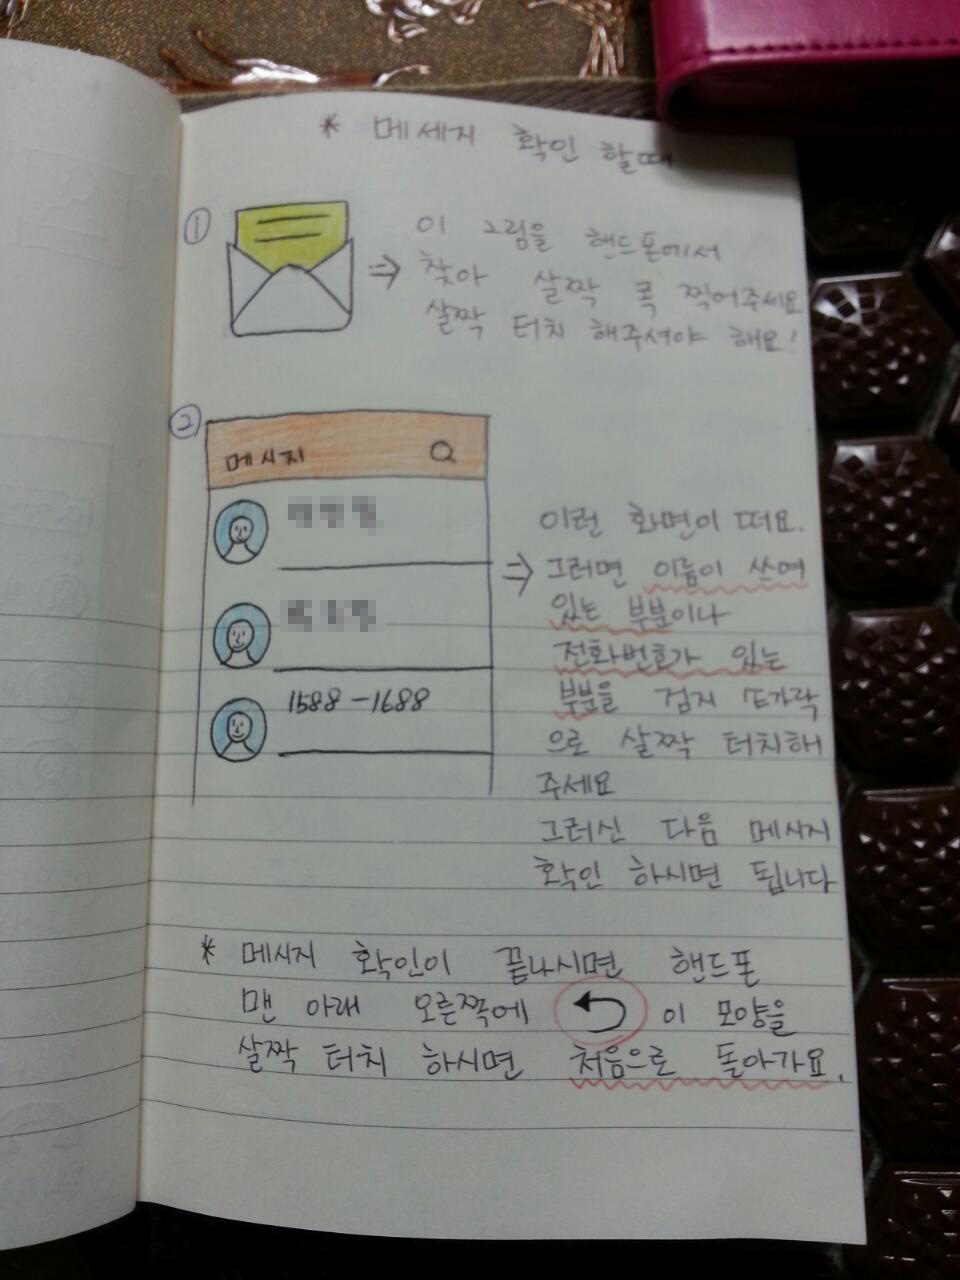 * 메세지 확인 할때
①
이 그림을 핸드폰에서
⇒ 찾아 살짝 콕 찍어주세요
살짝 터치 해주셔야 해요!
②
메시지
1588-1688
이런 화면이 떠요.
⇒ 그러면 이름이 쓰여
있는 부분이나
전화번호가 있는
부분을 검지 손가락
으로 살짝 터치해
주세요
그러신 다음 메시지
확인 하시면 됩니다
* 메시지 확인이 끝나시면 핸드폰
맨 아래 오른쪽에 이 모양을
살짝 터치 하시면 처음으로 돌아가요.